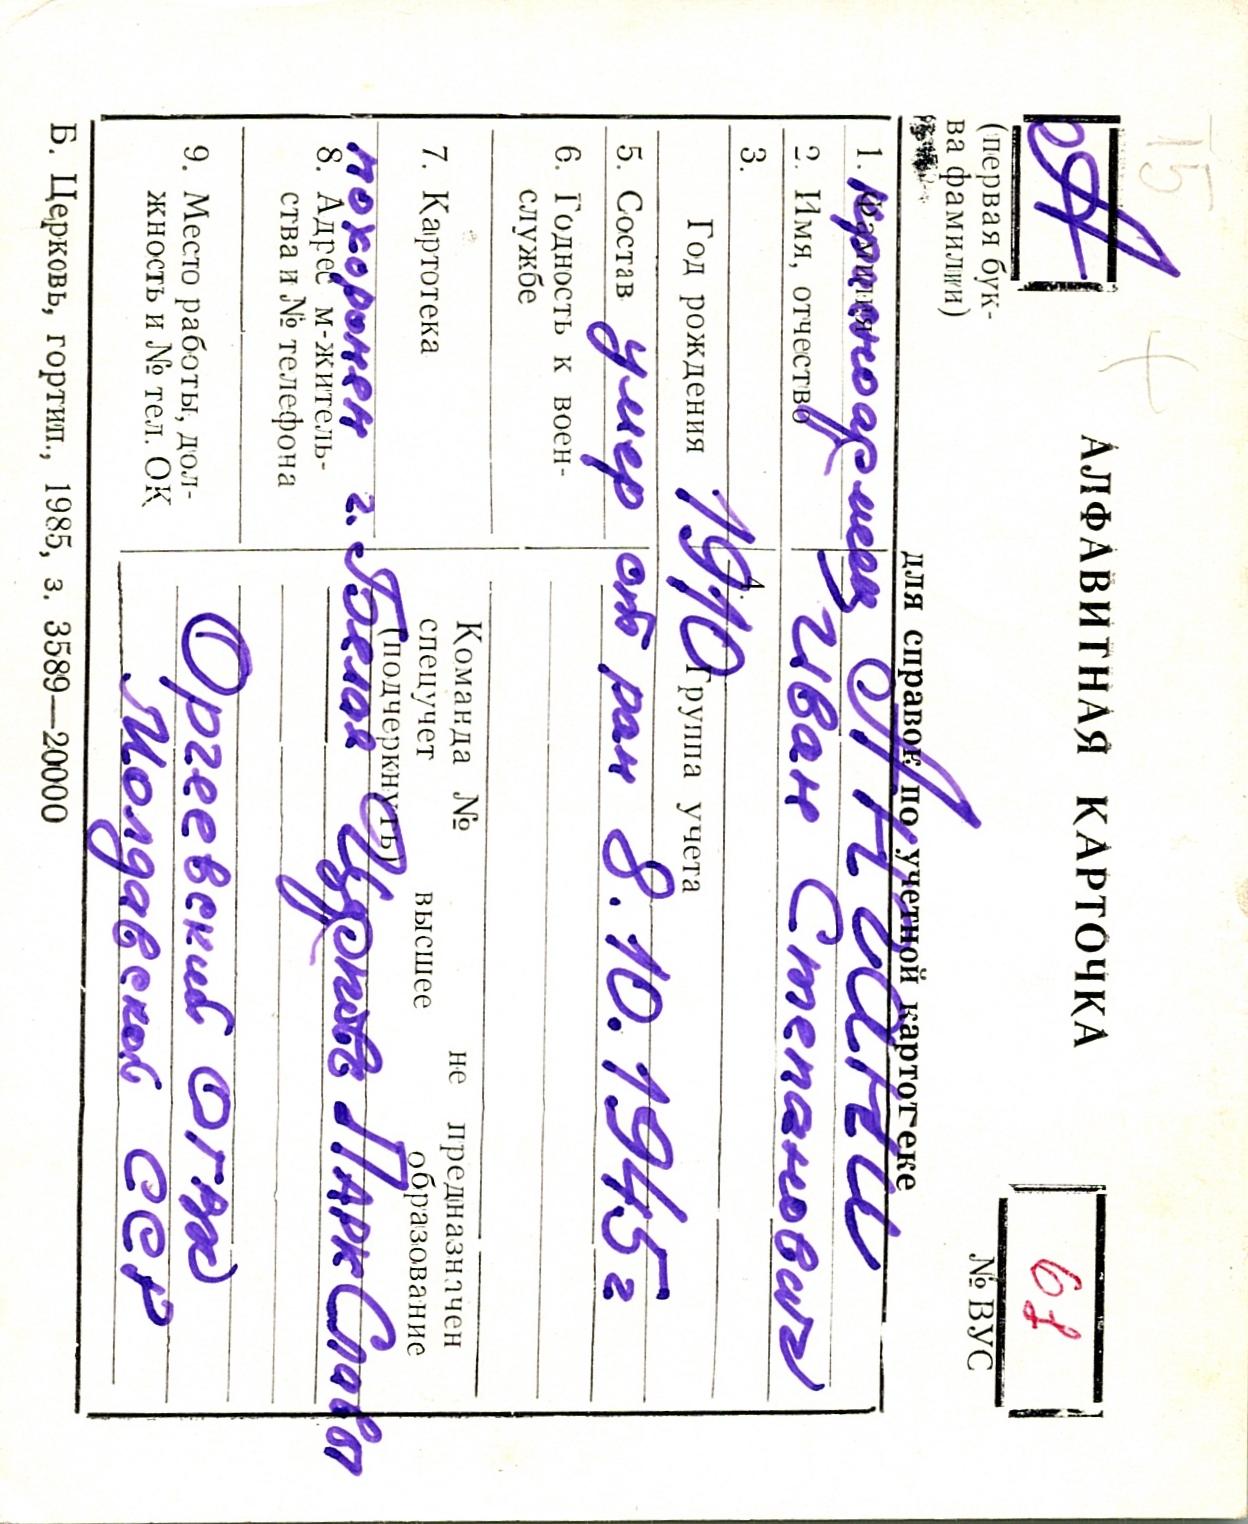 15
А
(первая бук-
ва фамилии)
АЛФАВИТНАЯ КАРТОЧКА
для справок по учетной картотеке
№ ВУС
1. Фамилия
красноармеец АНИАНИ
2. Имя, отчество
Иван Степанович
3.
Год рождения
1910
4. Группа учета
5. Состав
умер от ран 8.10.1945 г
6. Годность к воен-
службе
7. Картотека
Команда № не предназначен
спецучет высшее образование
(подчеркнуть)
похоронен г. Белая Церковь Парк Славы
8. Адрес м-житель-
ства и № телефона
9. Место работы, дол-
жность и № тел. ОК
Оргеевский ОГВК
Молдавской ССР
Б. Церковь, гортип., 1985, з. 3589—20000